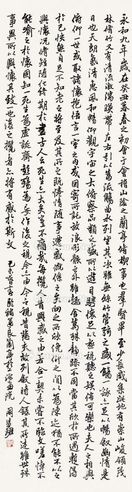 永和九年歲在癸丑暮春之初會于會稽山陰之蘭亭脩禊事也羣賢畢至少長咸集此地有崇山峻領茂
林脩竹又有清流激湍映帶左右引以為流觴曲水列坐其次雖無絲竹管弦之盛一觴一詠亦足以暢敘幽情是
日也天朗氣清惠風和暢仰觀宇宙之大俯察品類之盛所以遊目騁懷足以極視聽之娛信可樂也夫人之相與
俯仰一世或取諸懷抱悟言一室之內或因寄所託放浪形骸之外雖趣舍萬殊靜躁不同當其欣於所遇暫得
於己怏然自足不知老之將至及其所之既倦情隨事遷感慨係之矣向之所欣俛仰之間以為陳迹猶不能不以之
興懷況脩短隨化終期於盡古人云死生亦大矣豈不痛哉每攬昔人興感之由若合一契未嘗不臨文嗟悼不
能喻之於懷固知一死生為虛誕齊彭殤為妄作後之視今亦由今之視昔悲夫故列敘時人錄其所述雖世殊
事異所以興懷其致一也後之攬者亦將有感於斯文